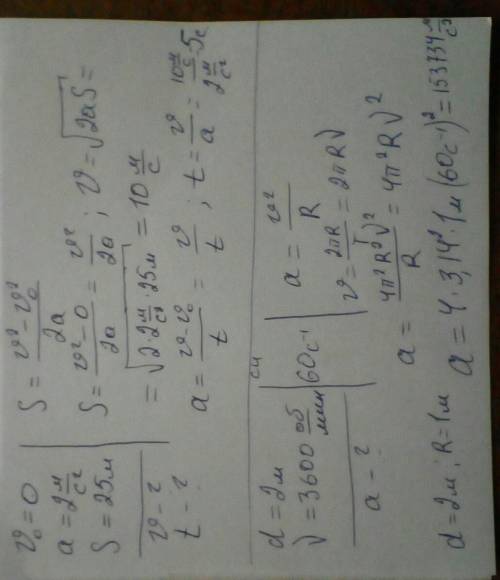 v₀=0
a=2 м/с²
S=25м
v-?
t-?
S = (v²-v₀²)/2a
S = (v²-0)/2a = v²/2a ; v=√2aS =
= √2·2 м/с²·25м = 10 м/с
a = (v-v₀)/t = v/t ; t = v/a = (10 м/с)/(2 м/с²) 5с
d=2м
ν=3600 об/мин
a-?
си
60с⁻¹
a = v²/R
v = 2πR/T = 2πRν
a = 4π²R²ν²/R = 4π²Rν²
d=2м; R=1м
a = 4·3,14²·1м(60с⁻¹)²=153734 м/с²